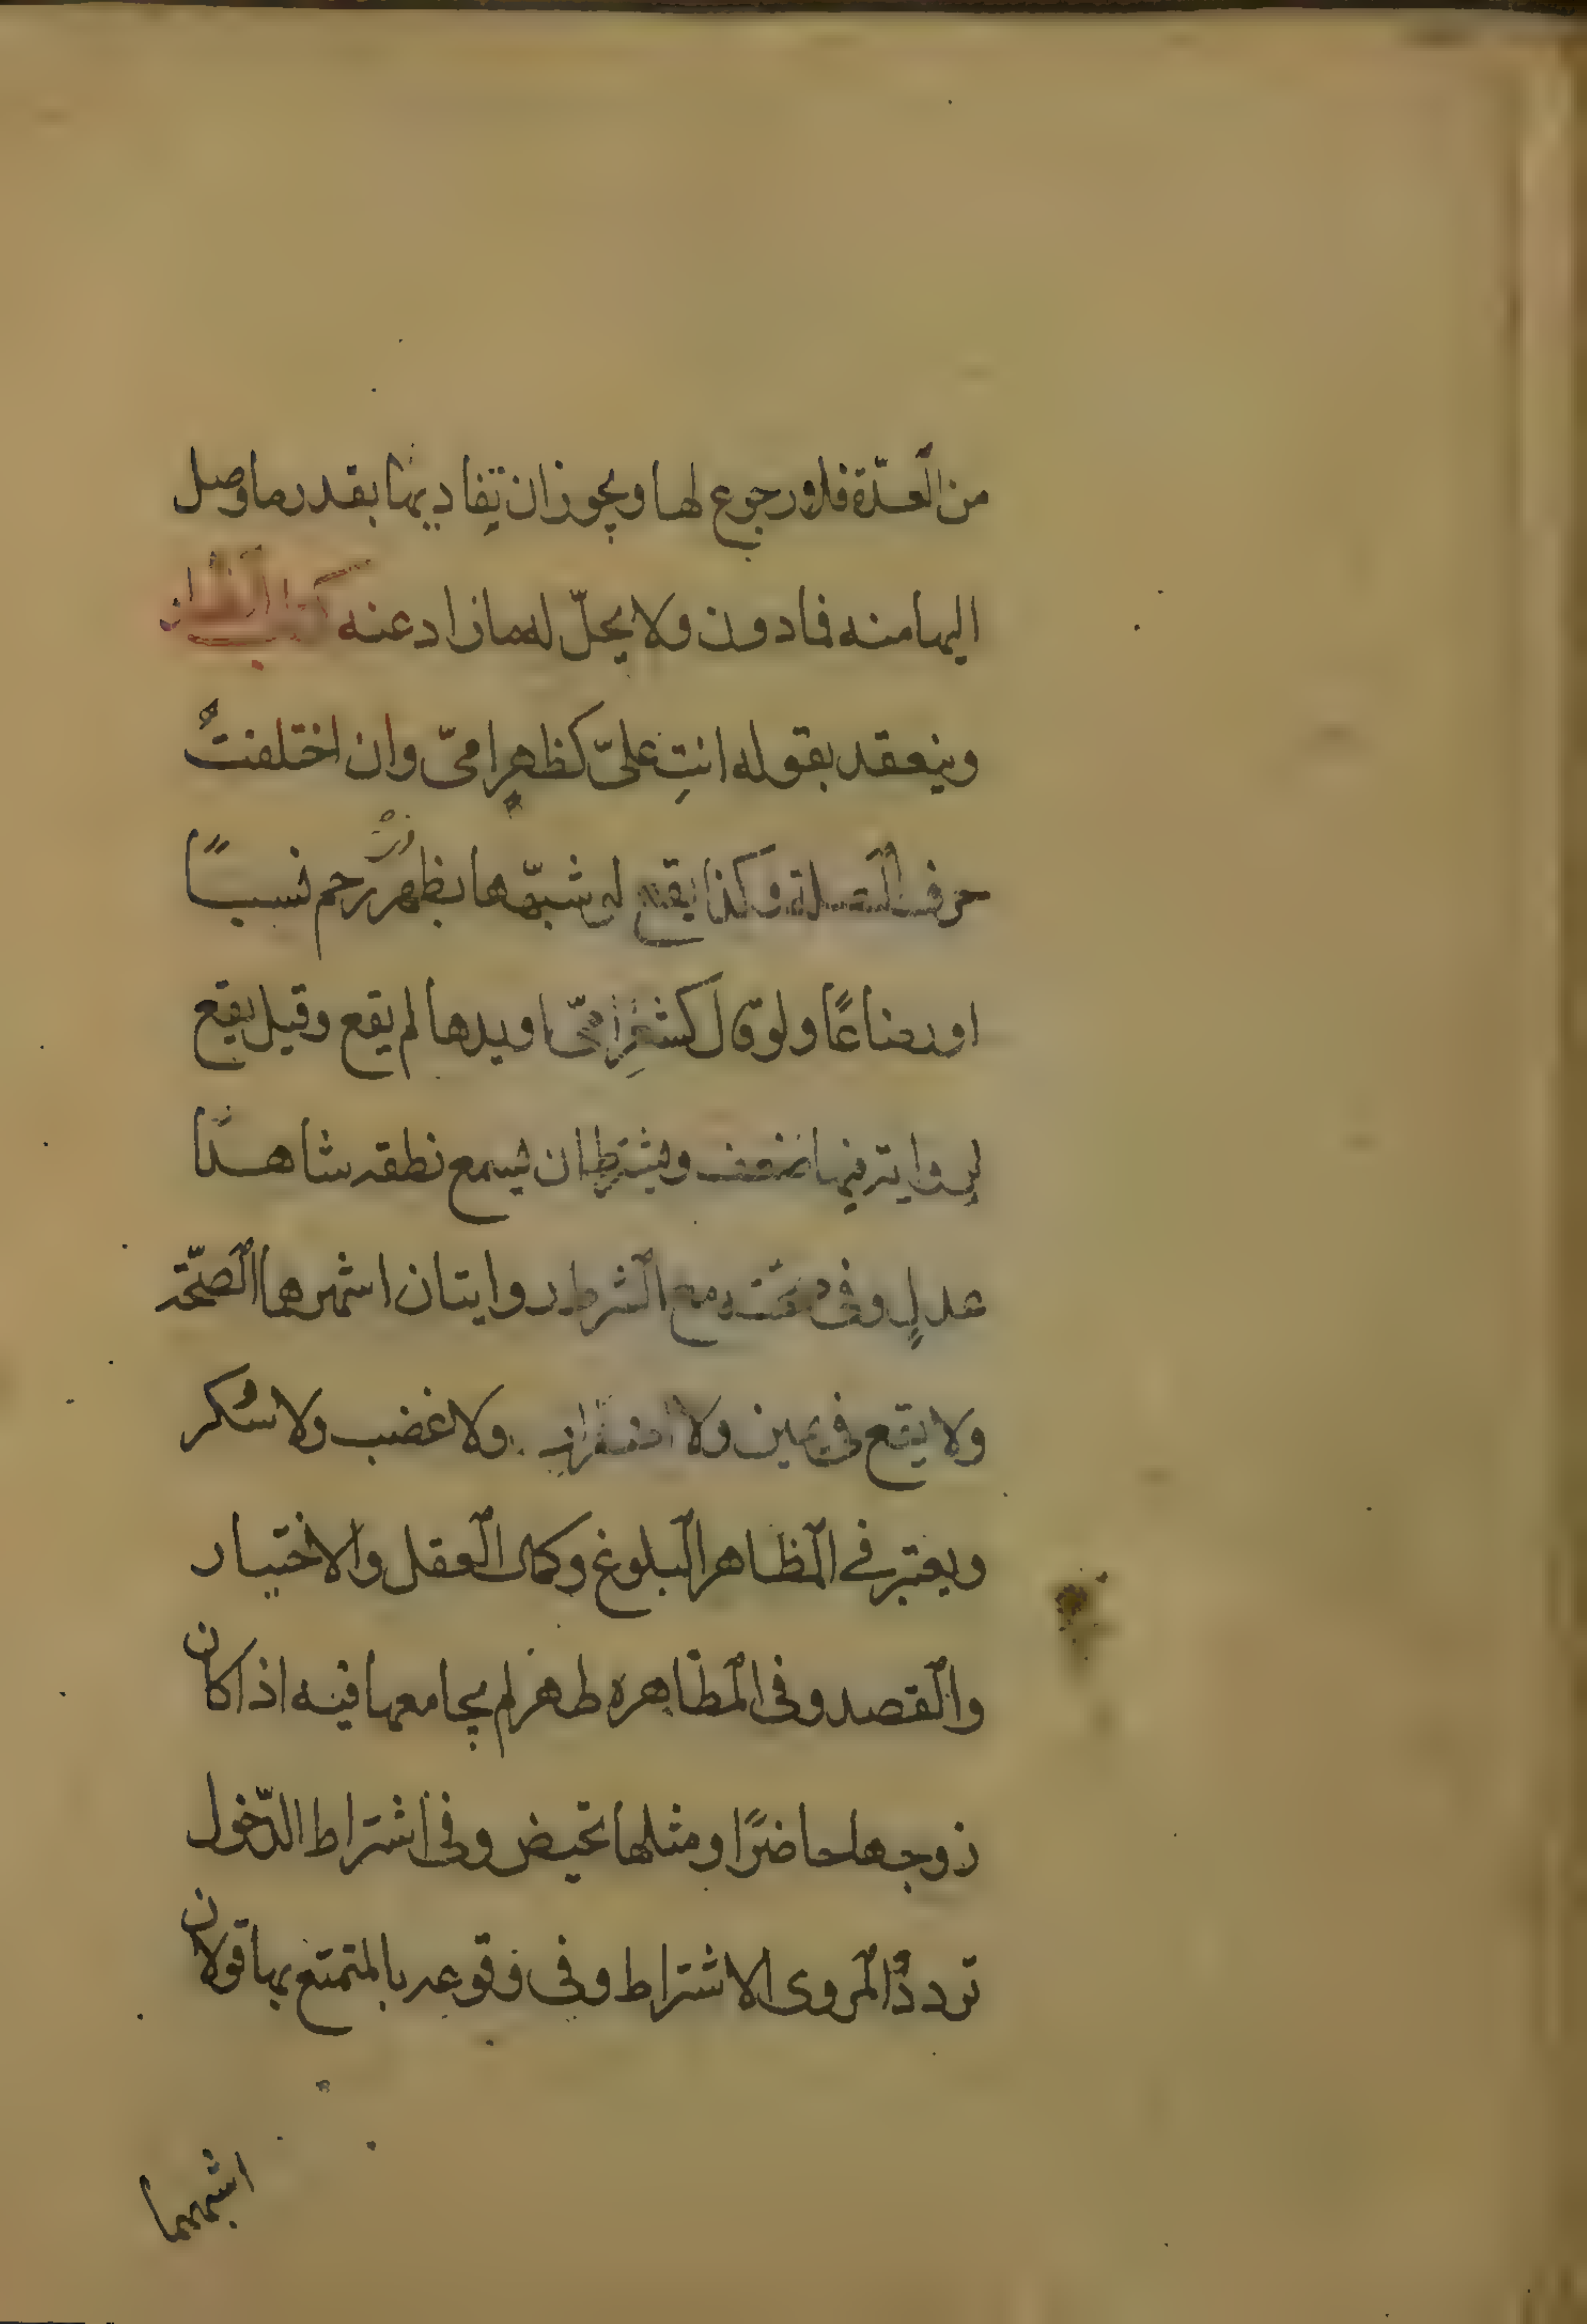 من العدّة فلا رجوع لها ويجوز ان يفاديها بقدر ما وصل
اليها منه فما دون ولا يحلّ له ما زاد عنه كتاب الظهار
وينعقد بقوله انتِ علىّ كظهرِ امىّ وان اختلفتْ
حرف الصلة وكذا يقع لو شبّهها بظهر رحم نسبًا
او رضاعًا ولو قال كشعرِ امىّ او يدها لم يقع وقيل يقع
لرواية فيها ضعف ويشترط ان يسمع نطقه شاهدًا
عدلٍ وفى صحّته مع الشرط روايتان اشهرها الصّحّة
ولا يقع فى يمين ولا اضرارٍ ولا غضب ولا سُكر
ويعتبر فى المظاهر البلوغ وكمال العقل والاختيار
والقصد وفى المظاهره طهر لم يجامعها فيه اذا كان
زوجها حاضرًا ومثلها تحيض وفى اشتراط الدّخول
تردّدٌ المروى الاشتراط وفى وقوعه بالمتمتع بها قولان
اشبههما